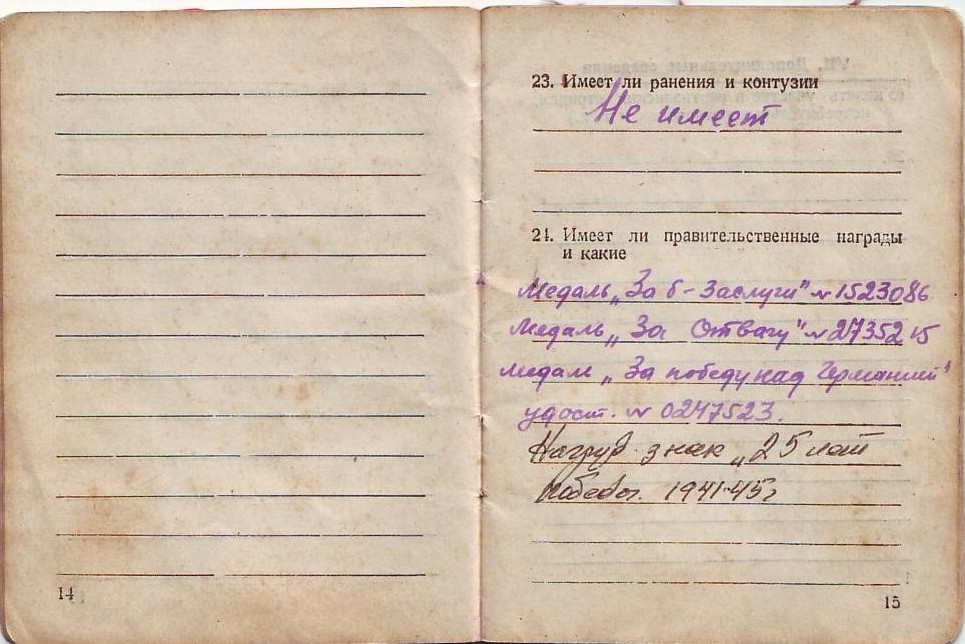 14
23. Имеет ли ранения и контузии
Не имеет
24. Имеет ли правительственные награды
и какие
Медаль „За б-Заслуги" № 1523086
Медаль „За Отвагу" № 2735215
медаль „За победу над Германией"
удост. № 0247523.
Нагруд. знак „25 лет
победы. 1941-45г
15